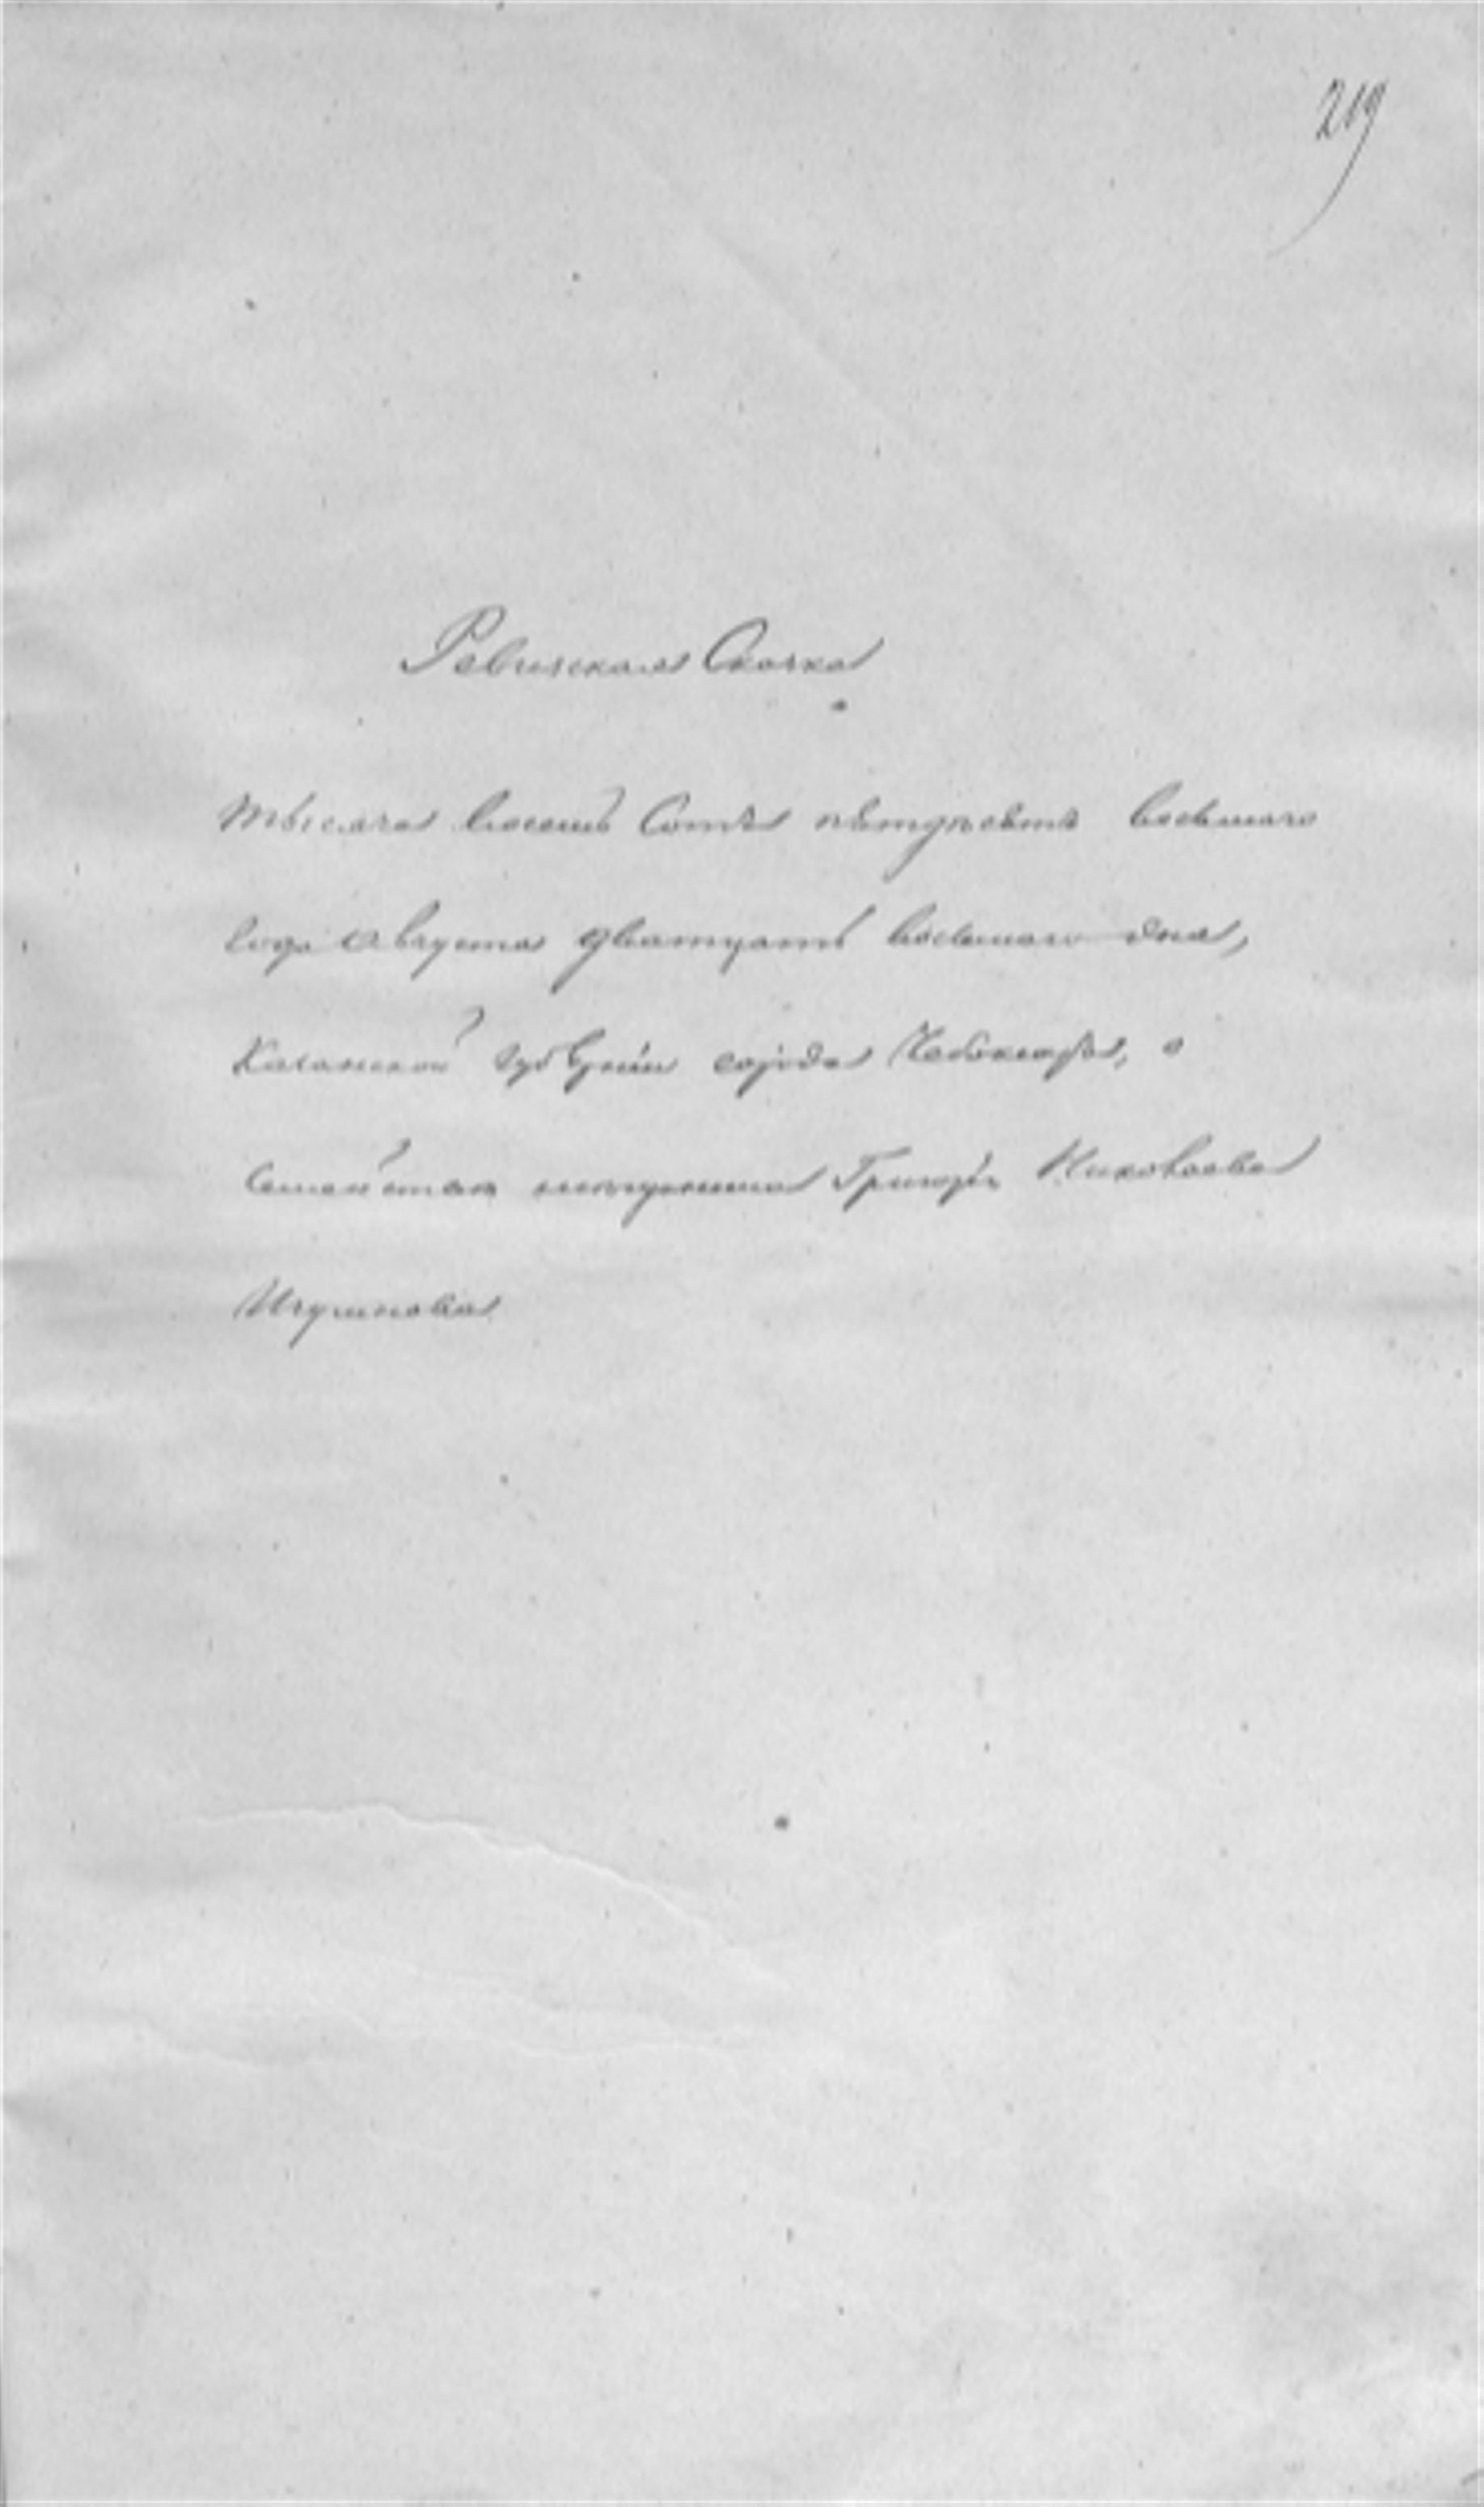 219
Ревизская Сказка
Тысяча восемь Сотъ пятдесятъ восьмаго
года Августа дватцать восьмаго дня,
Казанской Губерніи города Чебоксаръ, о
купца Григорія Николаева
Игумнова